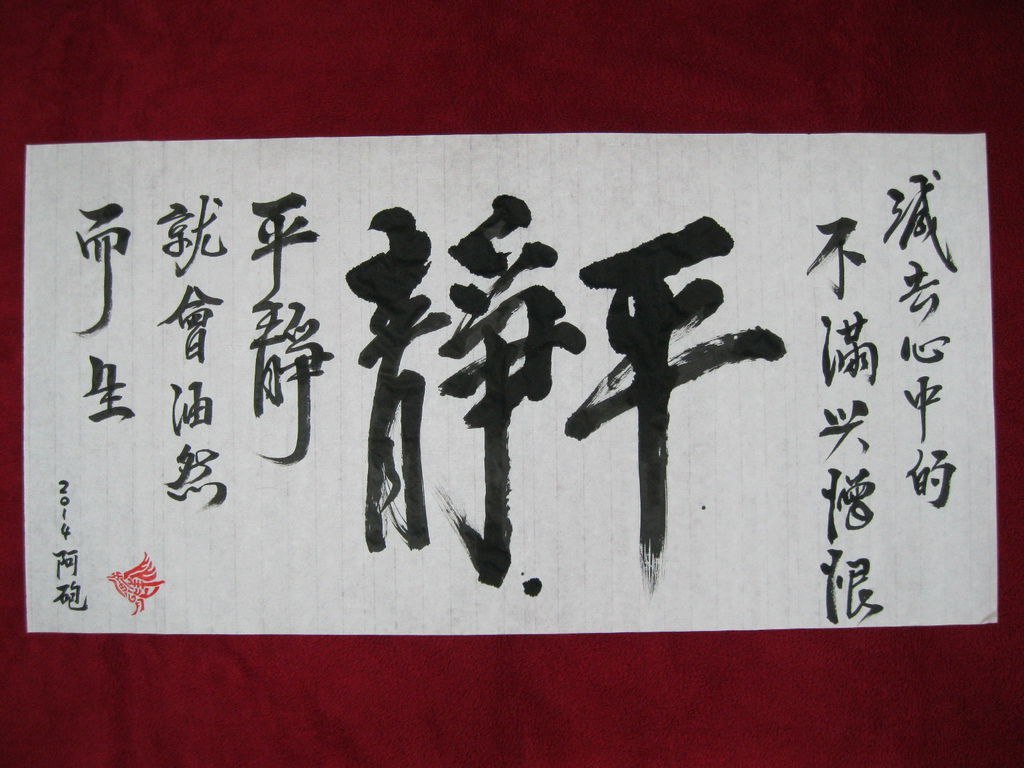 減去心中的
不滿與憎恨
平靜
平靜
就會油然
而生
2014 阿砲